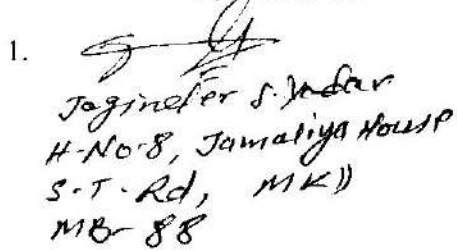 1.
Joginder S. Yadav
H-No-8, Jamaliya House
S.T. Rd,
MBr 88